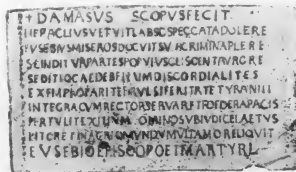 + DAMASVS SCOPVS FECIT
HERACLIVS VETVIT LABSC PECCATA DOLERE
EVSEBIVS MISEROS DOCVIT SVA CRIMINA PLERE
SCINDIT VR PARTES POPVLVS GLISCENTE VRORE
SEDITIO CAEDE BELLVM DISCORDIA LITES
INTEGRA CVM RECTOR SERVARET PACIS
PERTVLIT EXILIVM OMINO SVB IVDICE LAETVS
MVNDVM VITAM RELIQVIT
EVSEBIO EPISCOPO ET MARTYRI